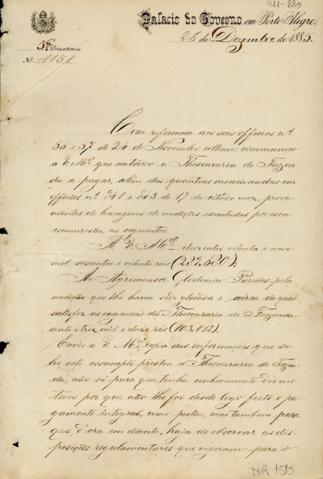 411-883
Palacio do Governo em Porto Alegre,
26 de Dezembro de 1885.
5ª Directoria
Nº 1151
Com referencia aos seus officios nº
56 e 57 de 24 de Novembro ultimo, communico
a V. Mcê que autoriso a Thesouraria de Fazen-
da a pagar, alem das quantias mencionadas em
officios nº 741 e 803 de 17 do citado mez, prove-
nientes de bagagens de medições executadas por essa
commissão, as seguintes:
A V. Mcê duzentos oitenta e nove
mil seiscentos e oitenta réis
Ao Agrimensor Pardos pela
medição que lhe havia sido glosada e acerca da qual
satisfez as exigencias da Thesouraria de Fazenda,
cento e tres mil e doze réis (103,012).
Envio a V. Mcê copia das informações que so-
bre este assumpto prestou a Thesouraria de Fazen-
da, não só para que tenha conhecimento dos mo-
tivos por que não lhe foi desde logo feito o pa-
gamento integral, como pediu, mas tambem para
que, d'ora em diante, haja de observar as dis-
posições regulamentares que vigoram para o